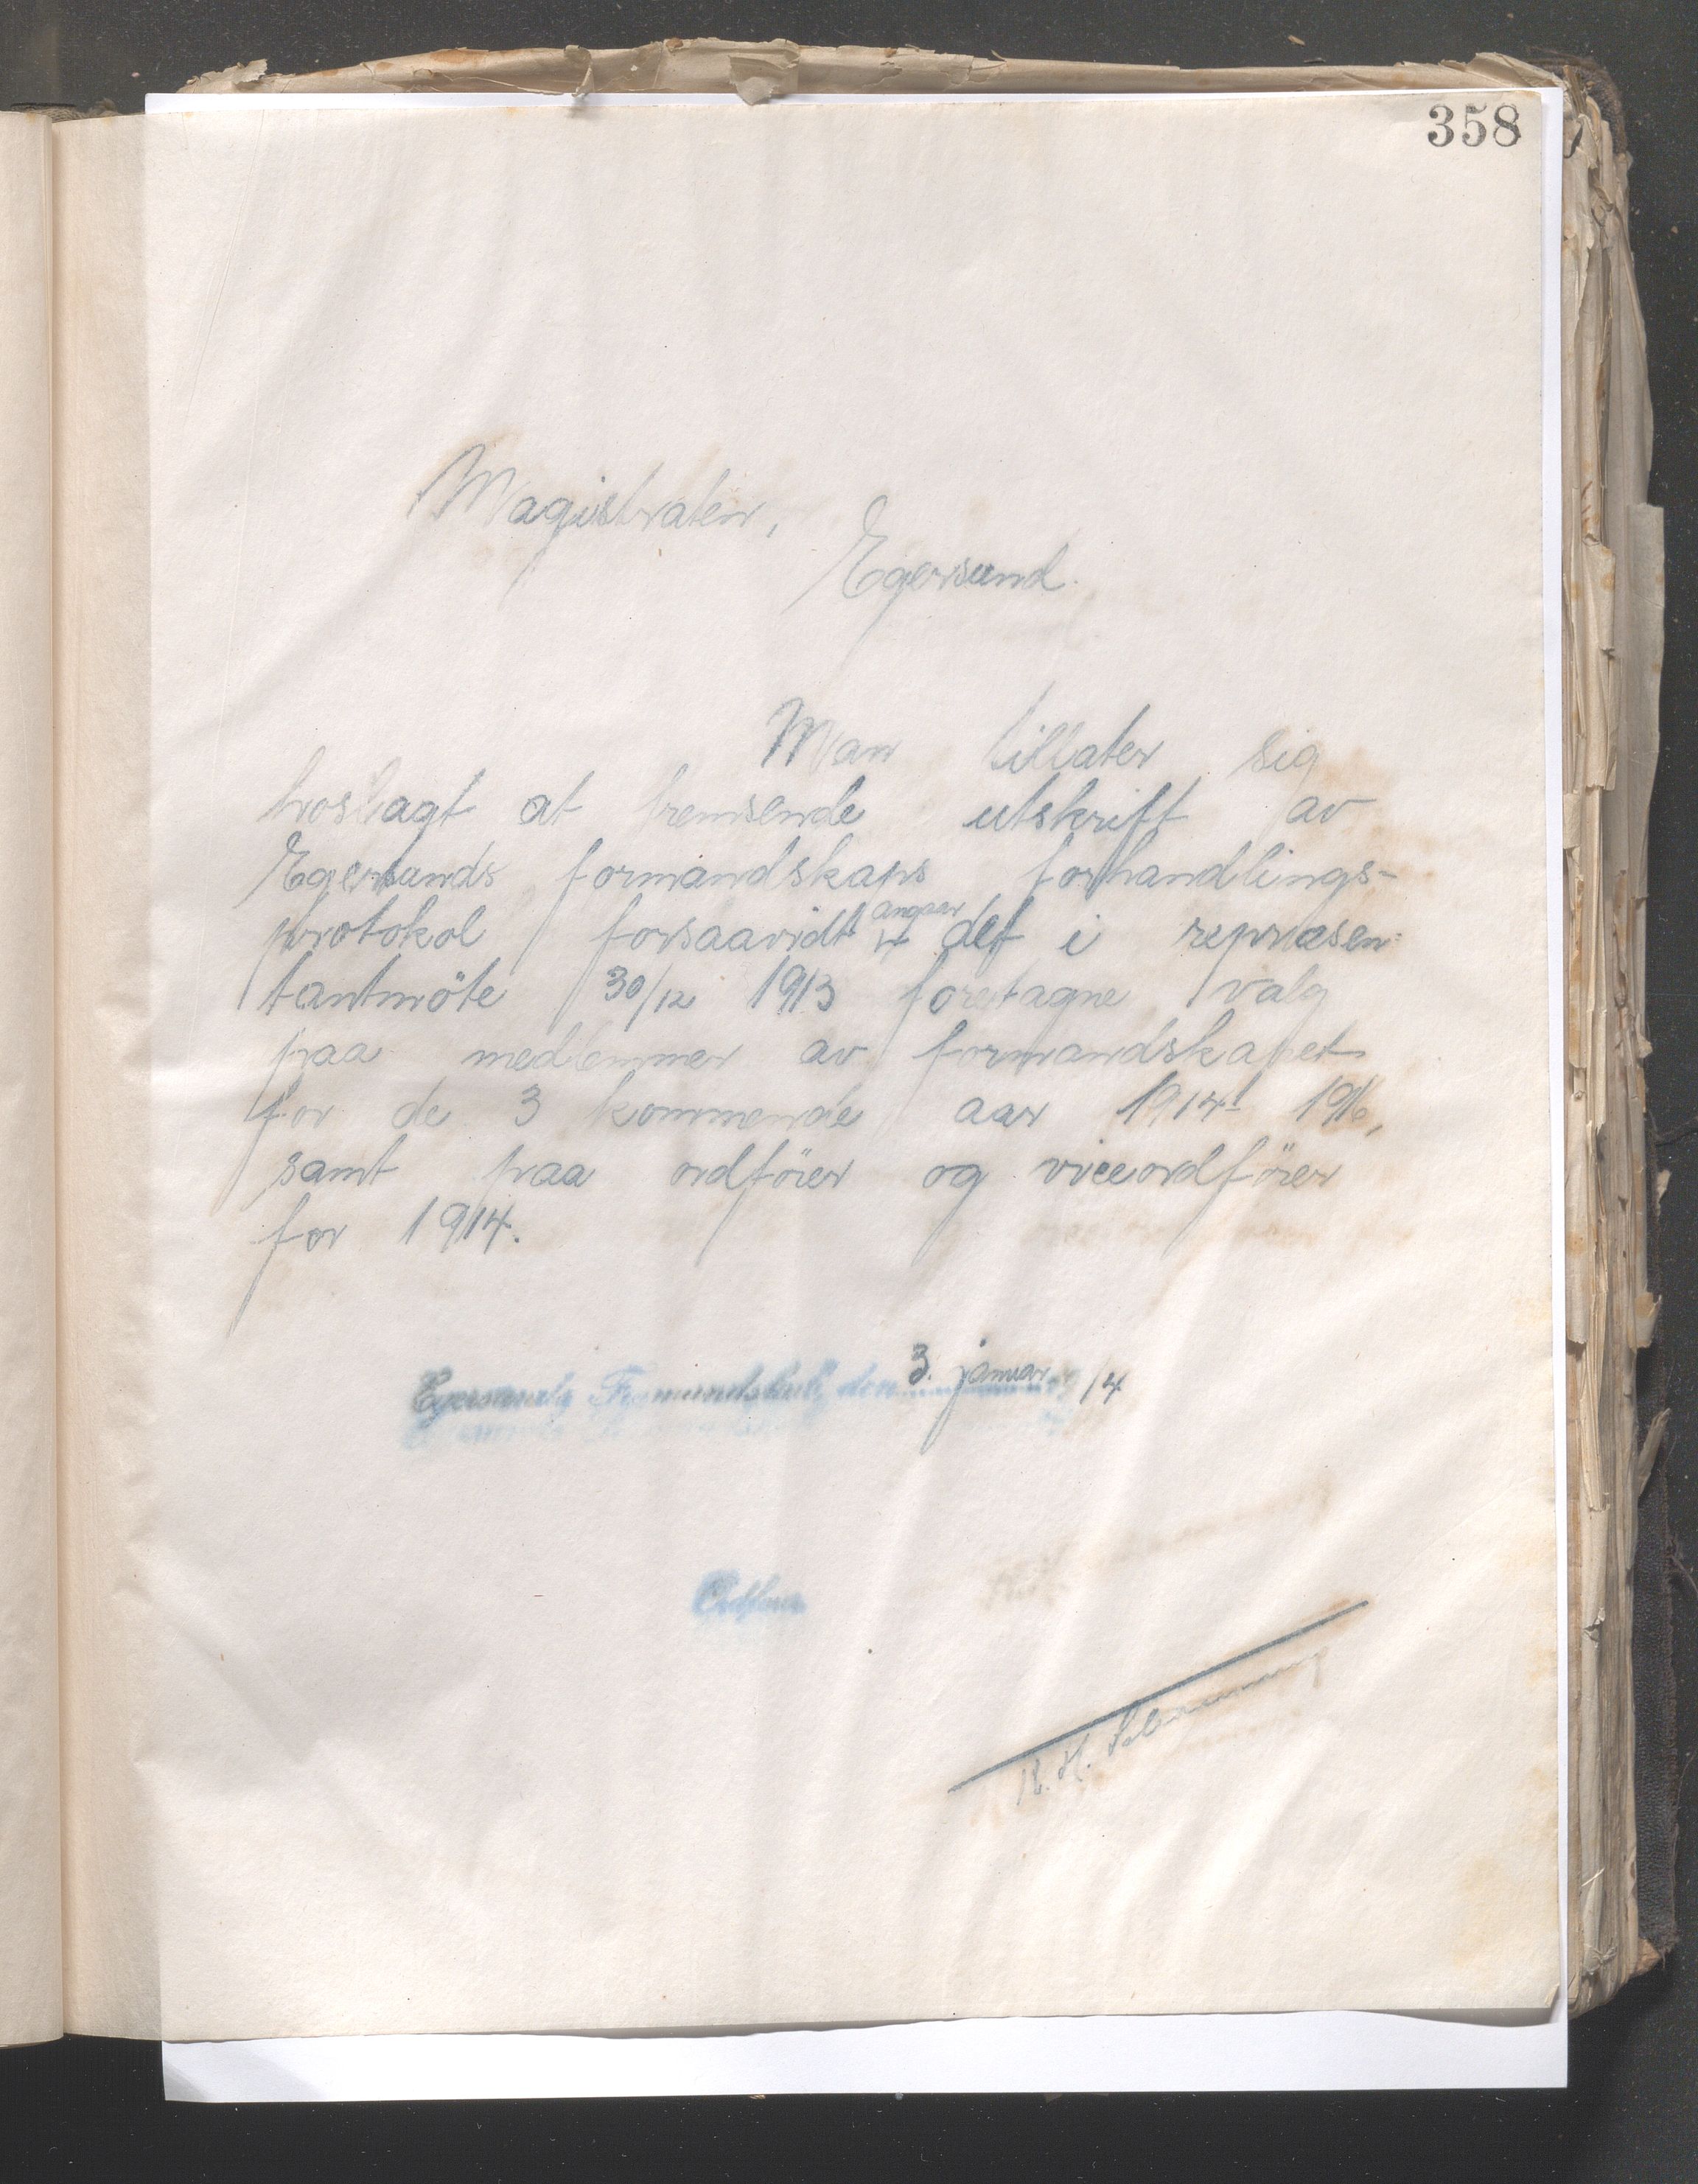 358
Magistraten,
Egersund.
Man tillater sig
hoslagt at fremsende utskrift av
Egersunds formandskaps forhandlings-
protokol forsaavidt angaar det i repræsen-
tantmöte 30/12 1913 foretagne valg
paa medlemmer av formandskapet
for de 3 kommende aar 1914/1916,
samt paa ordförer og viceordförer
for 1914.
Egersunds Formandskab, den 3. januar 14
Ordfører